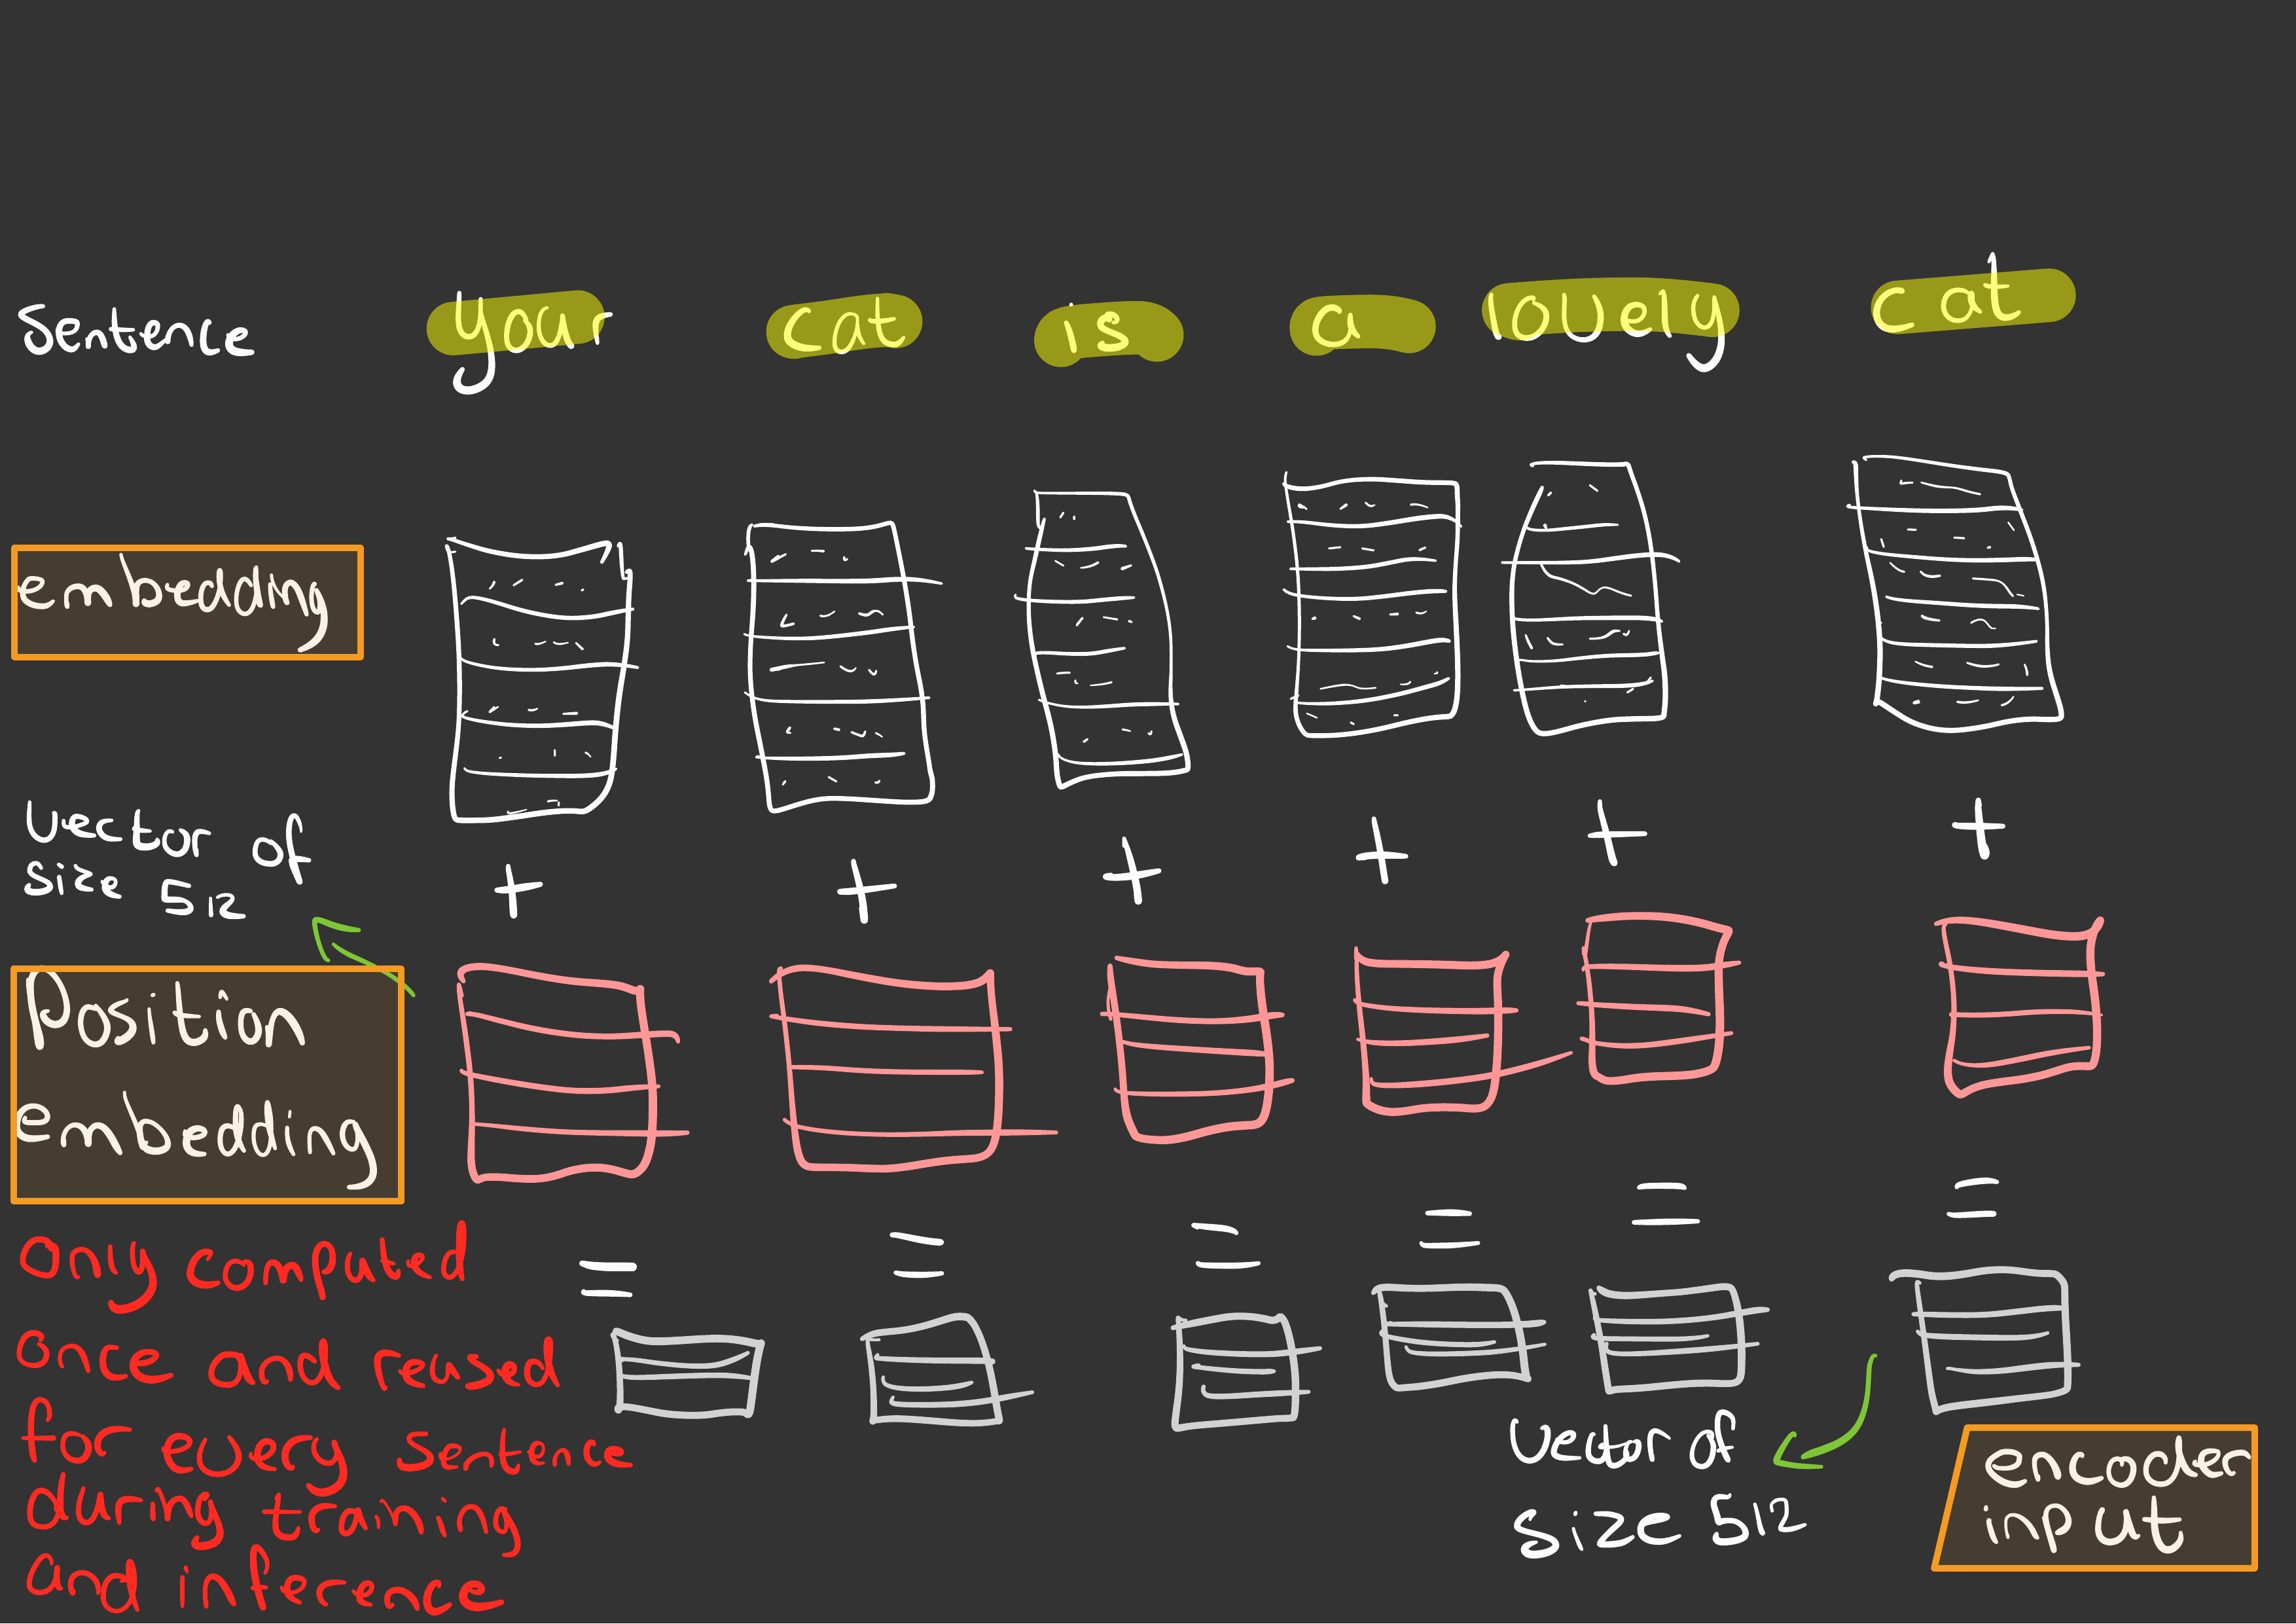 Sentence your cat is a lovely cat
embedding
Vector of
size 512
+ + + + + +
Position
embedding
= = = = = =
Only computed
once and reused
for every sentence
during training
and inference
Vector of
size 512
encoder
input